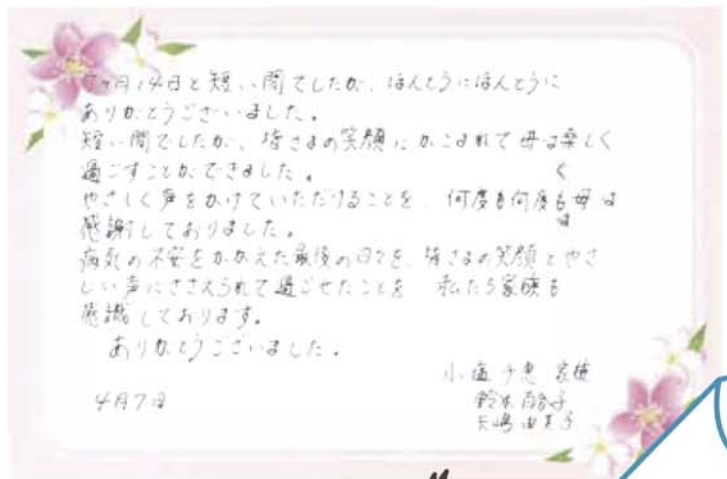 7ヶ月14日と短い間でしたが、ほんとうにほんとうに
ありがとうございました。
短い間でしたが、皆さまの笑顔にかこまれて母は楽しく
過ごすことができました。
やさしく声をかけていただけることを、何度も何度も母は
感謝しておりました。
病気の不安をかかえた最後の日々を、皆さまの笑顔とやさ
しい声にささえられて過ごせたことを 私たち家族も
感謝しております。
ありがとうございました。
家族
鈴木百合子
4月7日